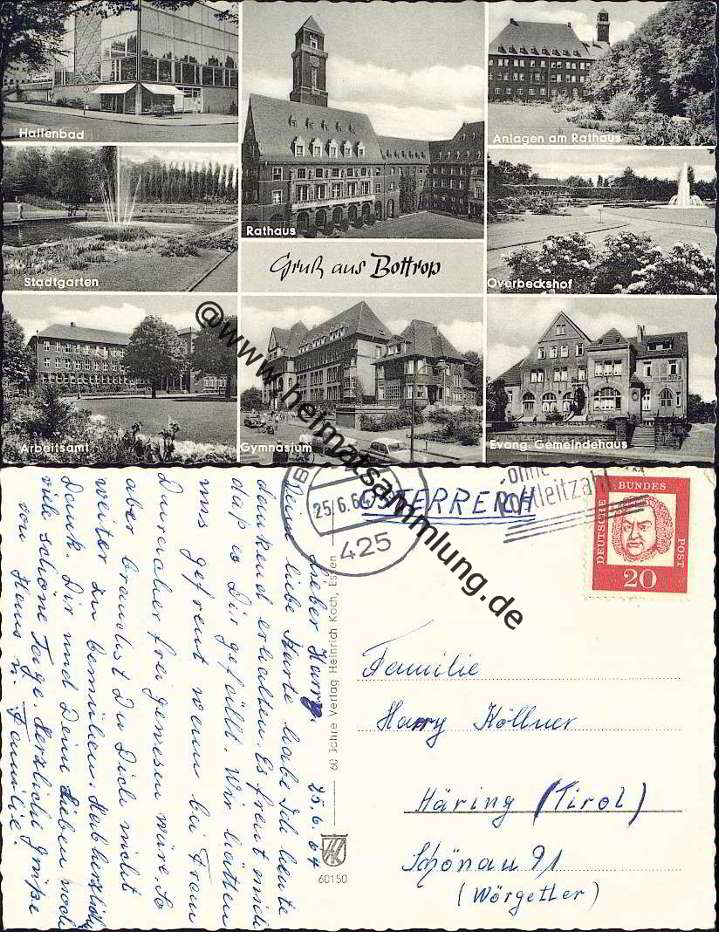 Hallenbad
Rathaus
Anlagen am Rathaus
Stadtgarten
Gruß aus Bottrop
Overbeckshof
Arbeitsamt
Gymnasium
Evang. Gemeindehaus
@www.heimatsammlung.de
25.6.64
425
ÖSTERREICH
ohne
Postleitzahl
DEUTSCHE BUNDES POST
20
Lieber Harry. 25.6.64
Deine liebe Karte habe Ich heute
dankend erhalten. Es freut mich
daß es Dir gefällt. Wir hätten
uns gefreut wenn bei Frau
Duracher frei gewesen wäre. So
aber brauchst Du Dich nicht
weiter zu bemühen. Hab herzlich
Dank. Dir und Deine Lieben noch
viele schöne Tage. Herzliche Grüße
von Hans u. Familie
60 Jahre Verlag Heinrich Koch, Essen
HK
60150
Familie
Harry Köllner
Häring (Tirol)
Schönau 91
(Wörgetler)